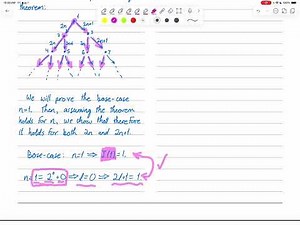 Theorem:
1
2n 2n+1
2 3
2n 2n+1
We will prove the base-case
n=1. Then, assuming the theorem
holds for n, we show that therefore
it holds for both 2n and 2n+1.
Base-case: n=1 ⟹ J(1)=1. ✓
n=1=2⁰+0 ⟹ l=0 ⟹ 2l+1=1